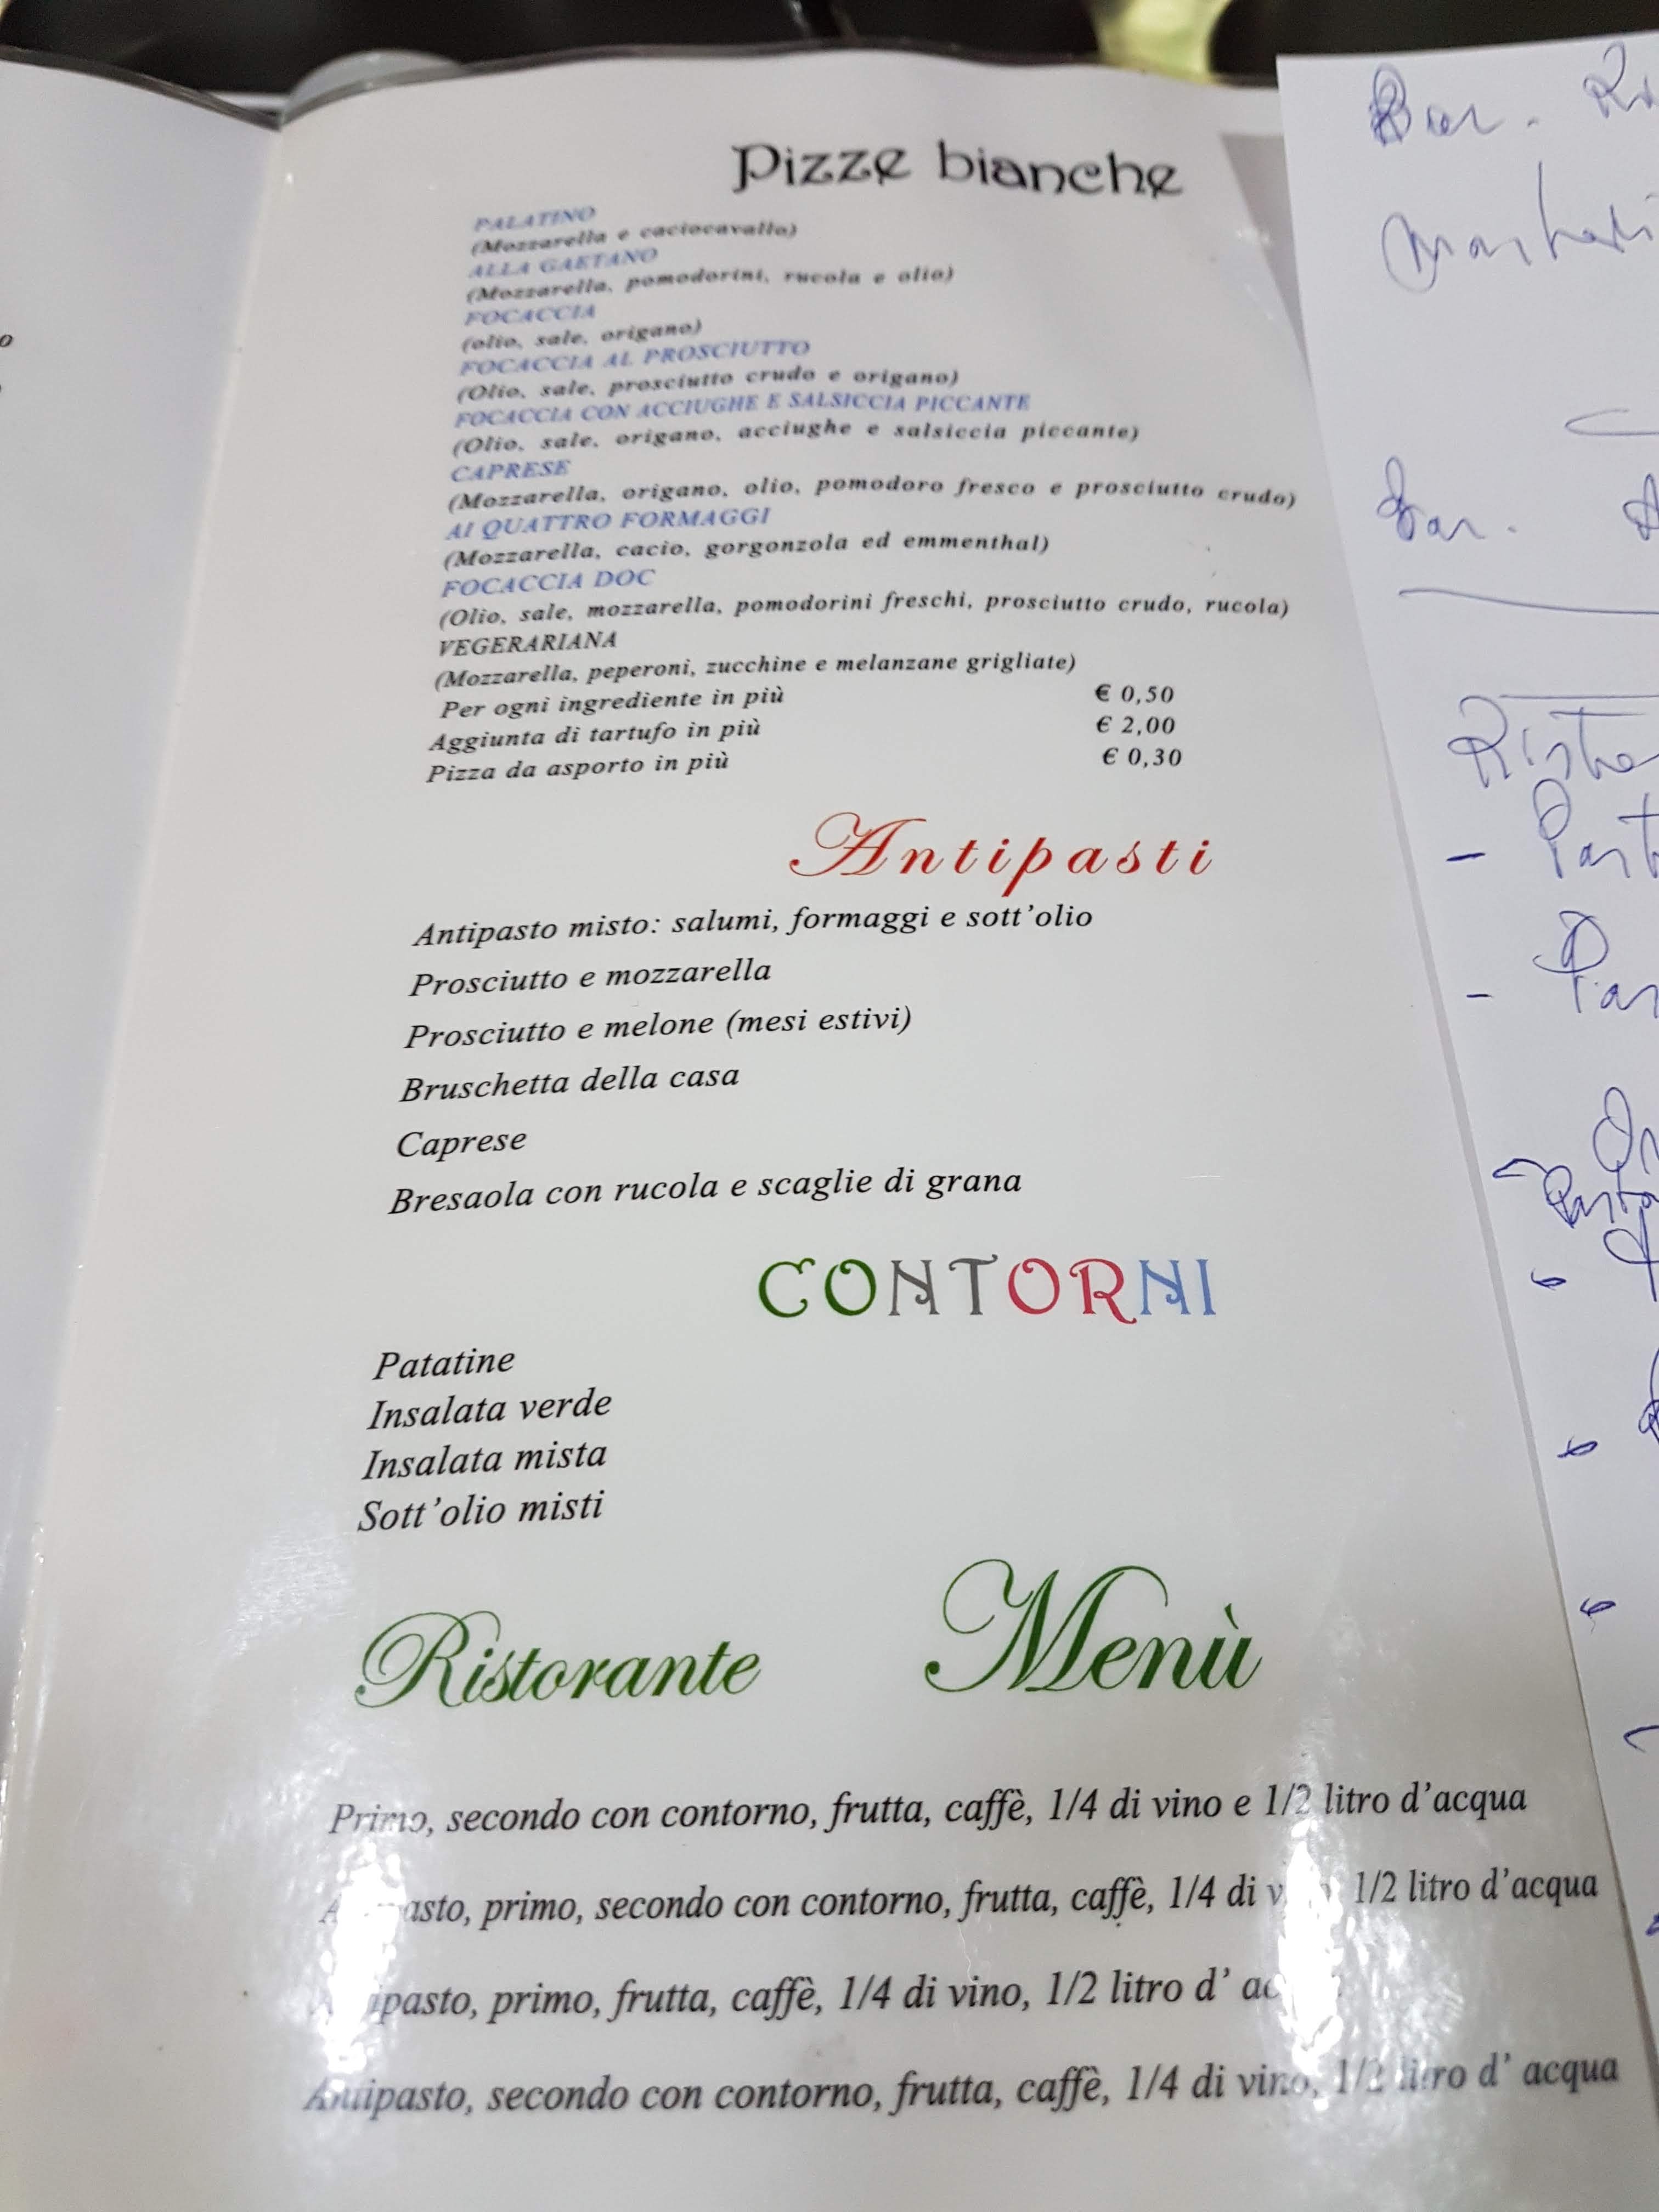 Pizze bianche
PALATINO
(Mozzarella e caciocavallo)
ALLA GAETANO
(Mozzarella, pomodorini, rucola e olio)
FOCACCIA
(olio, sale, origano)
FOCACCIA AL PROSCIUTTO
(Olio, sale, prosciutto crudo e origano)
FOCACCIA CON ACCIUGHE E SALSICCIA PICCANTE
(Olio, sale, origano, acciughe e salsiccia piccante)
CAPRESE
(Mozzarella, origano, olio, pomodoro fresco e prosciutto crudo)
AI QUATTRO FORMAGGI
(Mozzarella, cacio, gorgonzola ed emmenthal)
FOCACCIA DOC
(Olio, sale, mozzarella, pomodorini freschi, prosciutto crudo, rucola)
VEGERARIANA
(Mozzarella, peperoni, zucchine e melanzane grigliate)
Per ogni ingrediente in più € 0,50
Aggiunta di tartufo in più € 2,00
Pizza da asporto in più € 0,30
Antipasti
Antipasto misto: salumi, formaggi e sott'olio
Prosciutto e mozzarella
Prosciutto e melone (mesi estivi)
Bruschetta della casa
Caprese
Bresaola con rucola e scaglie di grana
CONTORNI
Patatine
Insalata verde
Insalata mista
Sott'olio misti
Ristorante Menù
Primo, secondo con contorno, frutta, caffè, 1/4 di vino e 1/2 litro d'acqua
primo, secondo con contorno, frutta, caffè, 1/4 di 1/2 litro d'acqua
primo, frutta, caffè, 1/4 di vino, 1/2 litro d'
Antipasto, secondo con contorno, frutta, caffè, 1/4 di vino, 1/2 litro d' acqua